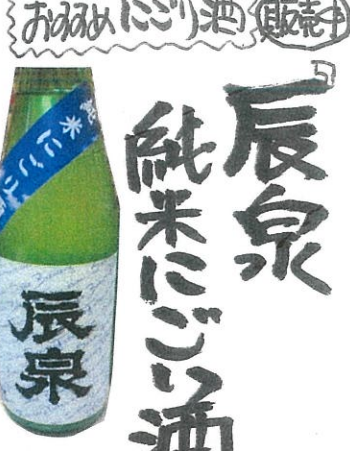 おすすめ にごり酒 販売中
辰泉
純米にごり酒
純米にごり酒
辰泉